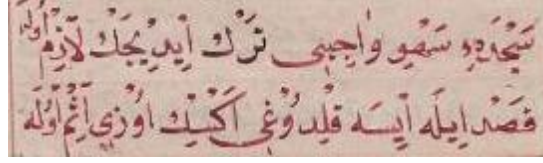 سَجْدَۀِ سَهْو وَاجِبِى تَرْك اَيدِيجَكْ لَازِمْ اُولَه
قَصْد ايلَه اَيسَه قِلِدُوغِى اَكْسِكْ اوُزِى آثِمْ اوُلَه